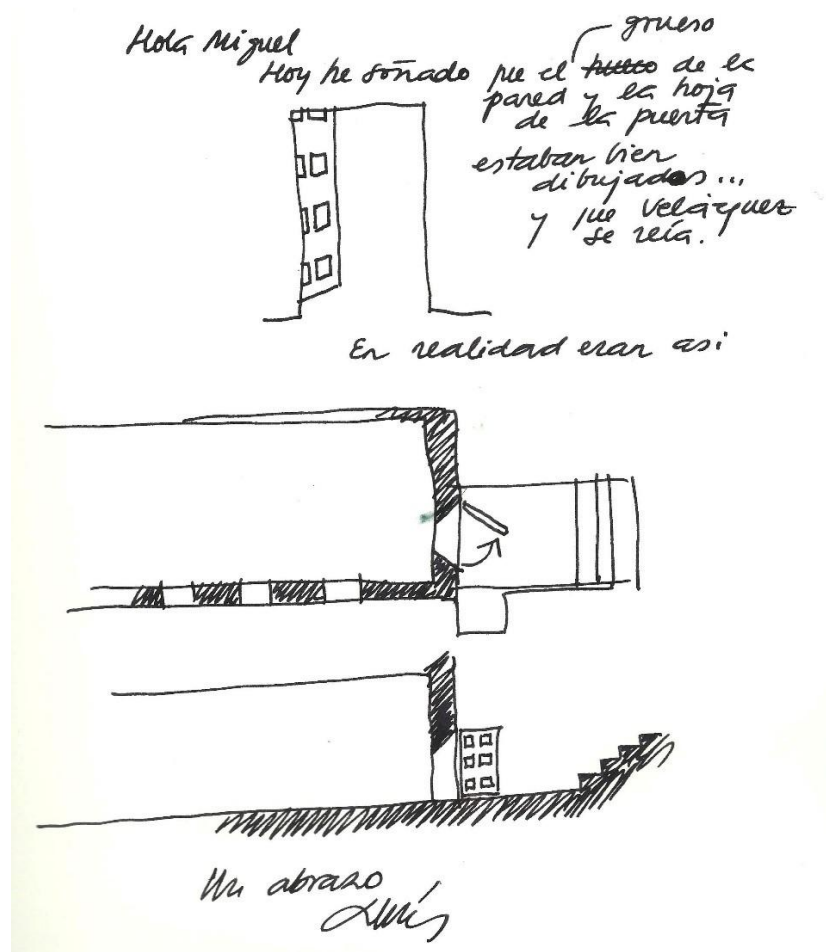 Hola Miguel
grueso
Hoy he soñado que el hueco de la
pared y la hoja
de la puerta
estaban bien
dibujados...
y que Velázquez
se reía.
En realidad eran asi
Un abrazo
Luís